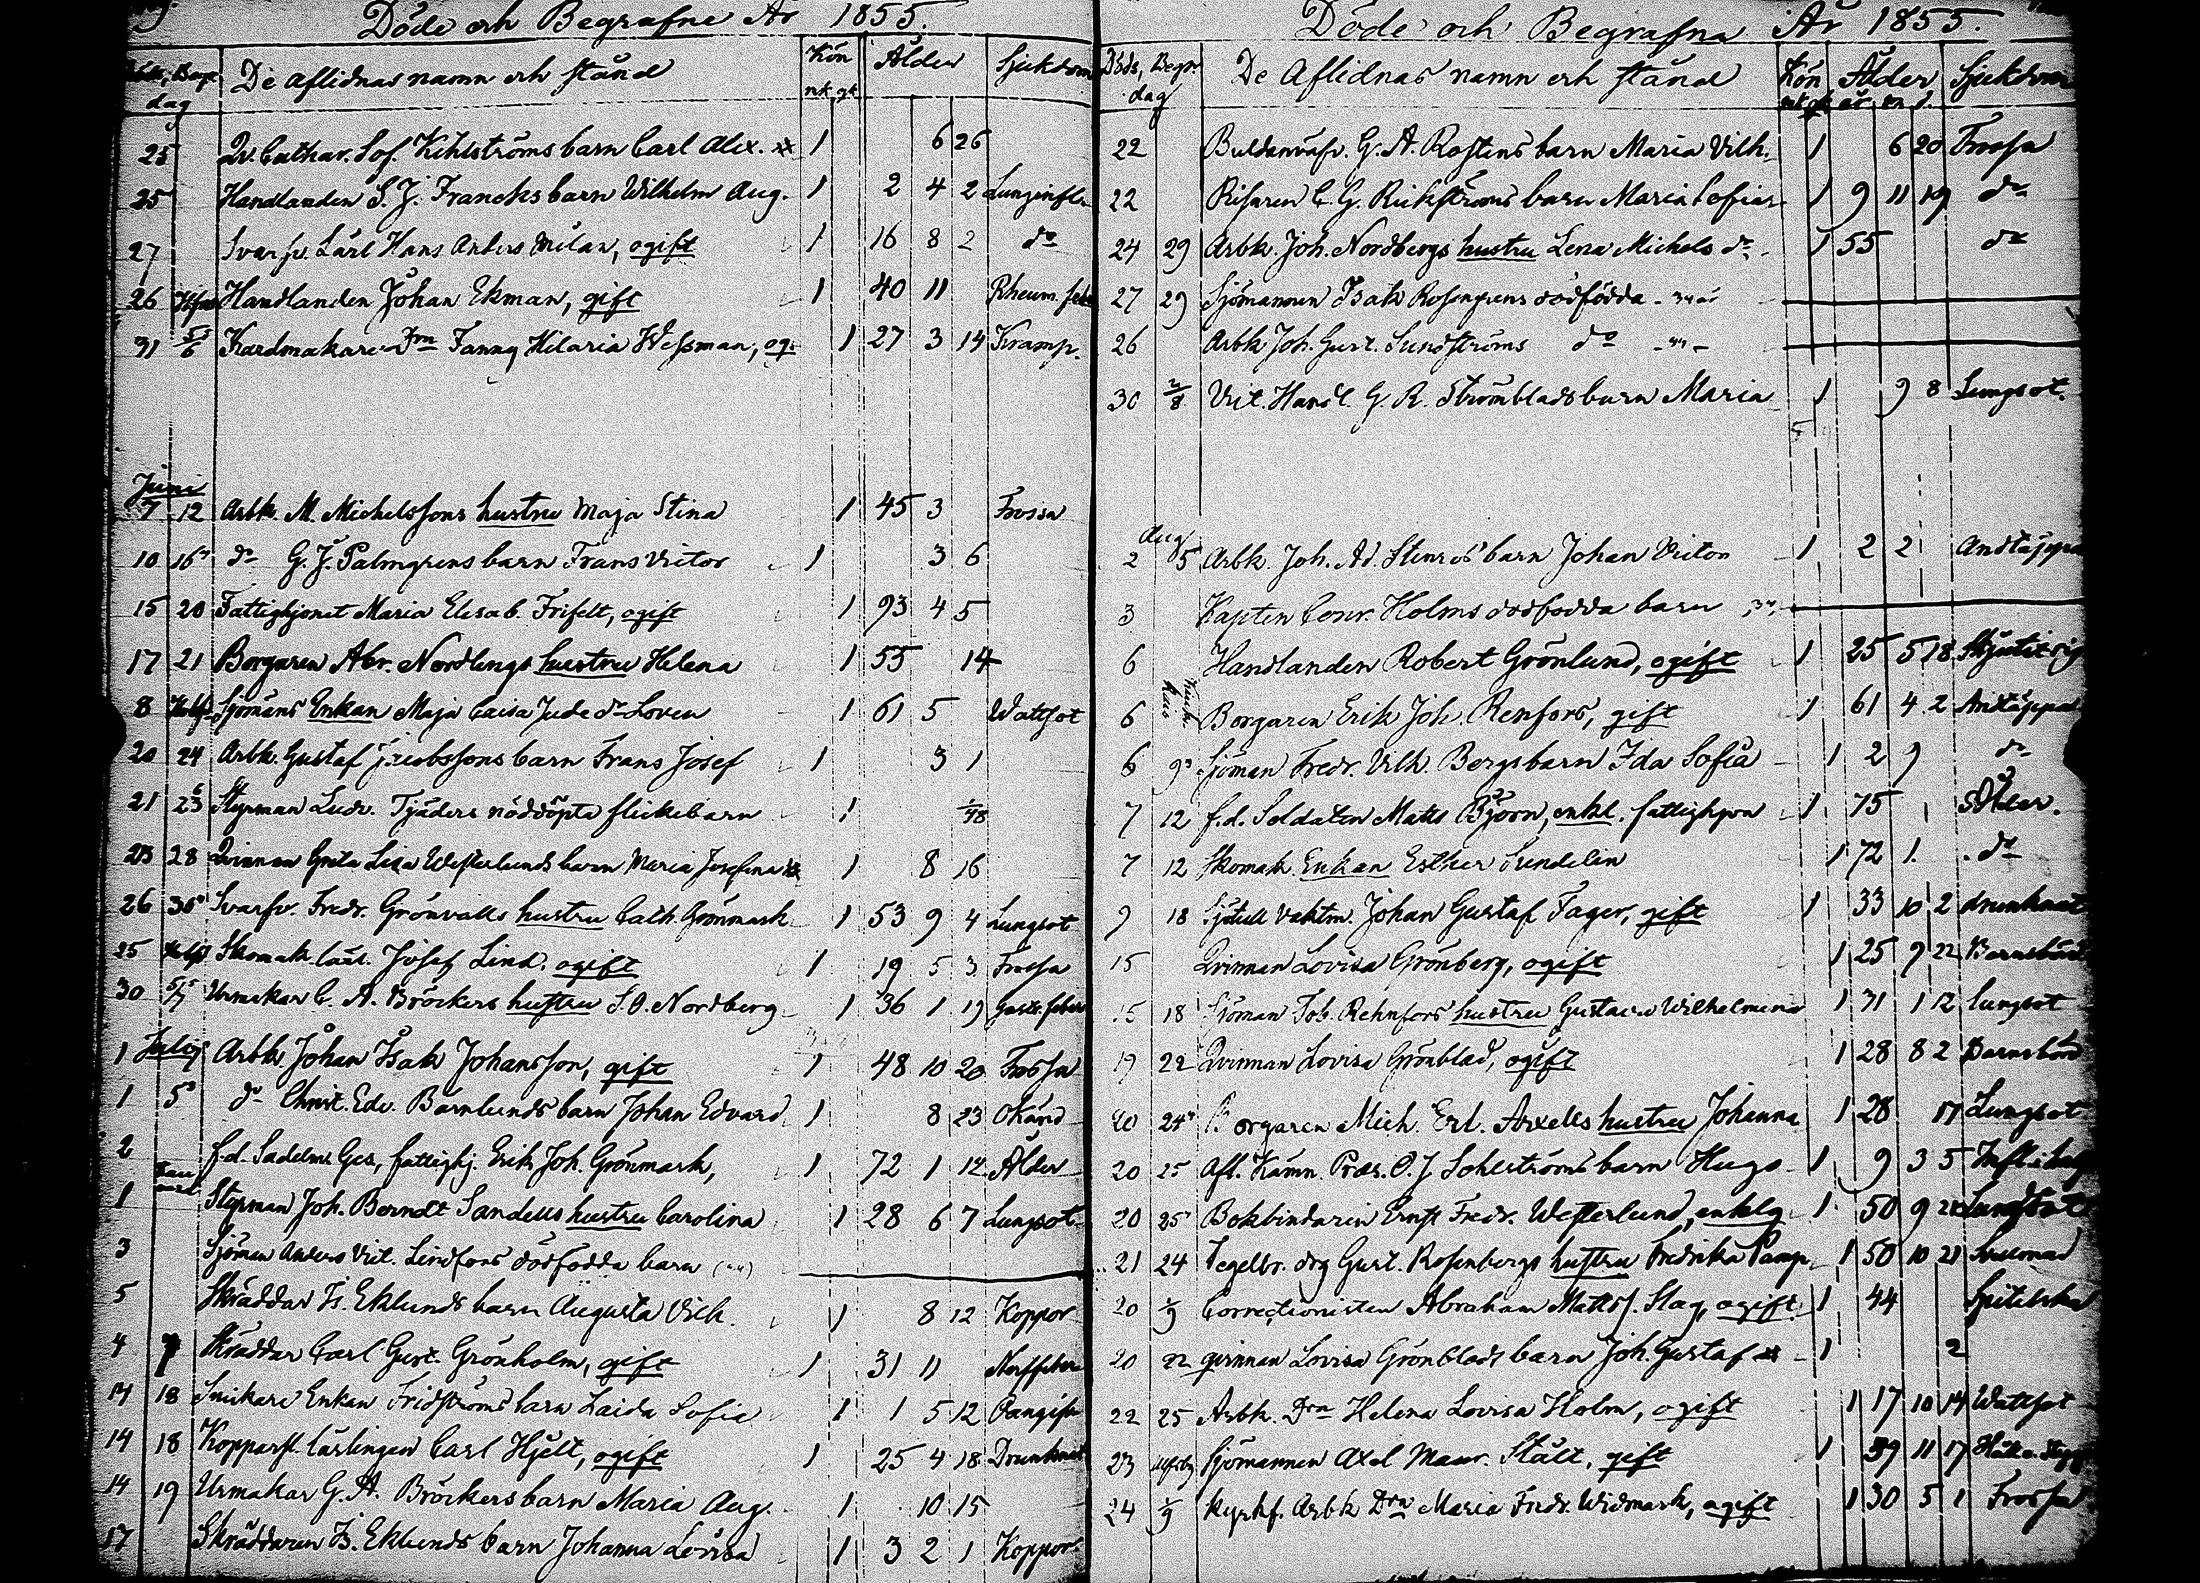 Döde och Begrafne År 1855.
Döds, Begr. dag De aflidnas namn och stånd Kön mk. qk. Ålder Sjukdom
25 Qv. Cathar. Sof. Kihlströms barn Carl Alex. 1 6 26
25 Handlanden S. J. Francks barn Wilhelm Aug. 1 2 4 2 Lunginfl.
27 Svarfv. Lärl Hans Anders Milan, ogift 1 16 8 2 do
26 Handlanden Johan Ekman, gift 1 40 11 Rheum. feb
31 5/6 Kardmakare Drn Fanny Hilaria Wessman, og. 1 27 3 14 Kramp.
Juni
7 12 Arbk. M. Michelssons hustru Maja Stina 1 45 3 Frossa
10 16 do G. J. Palmgrens barn Frans Victor 1 3 6
15 20 Fattighjonet Maria Elisab. Frifelt, ogift 1 93 4 5
17 21 Borgaren Abr. Nordlings hustru Helena 1 55 14
8 Sjömans Enkan Maja Caisa Jude do Loven 1 61 5 Wattsot
20 24 Arbk. Gustaf Jacobssons barn Frans Josef 1 3 1
21 23 Styrman Ludv. Tjäders nöddöpta flickebarn 1 1/48
23 28 Qvinnan Greta Lisa Westerlunds barn Maria Josefina 1 8 16
26 30 Svarfv. Fredr. Grönvalls hustru Cath. Grönmark 1 53 9 4 Lungsot
25 Skomak. lärl. Josef Lind, ogift 1 19 5 3 Frossa
30 5/7 Urmakar C. A. Bröckers hustru S. O. Nordberg 1 36 1 19 Gastr. feber
Julij
1 Arbk. Johan Isak Johansson, gift 1 48 10 20 Frossa
1 5 do Christ. Edv. Barnlunds barn Johan Edvard 1 8 23 Okänd
2 f.d. Sadelm. Ges, fattighj. Erik Joh. Grönmark, 1 72 1 12 Ålder
1 Styrman Joh. Berndt Sandells hustru Carolina 1 28 6 7 Lungsot
3 Sjöman Anders Vil. Lindfors dödfödda barn
5 Skräddar Is. Eklunds barn Augusta Vilh. 1 8 12 Koppor
4 7 Skräddar Carl Gust. Grönholm, gift 1 31 11 Nerffeber
14 18 Snickare Enkan Fridströms barn Laida Sofia 1 1 5 12
14 18 Kopparsl. lärlingen Carl Hjelt, ogift 1 25 4 18 Drunknat
14 19 Urmakar G. A. Bröckers barn Maria Aug. 1 10 15
17 Skräddaren Is. Eklunds barn Johanna Lovisa 1 3 2 1 Koppor
Döde och Begrafna År 1855.
Döds, Begr. dag De Aflidnas namn och stånd Kön mk qk Ålder år m d Sjukdom
22 G. A. Rostens barn Maria Vilh. 1 6 20 Frossa
22 C. G. Rickströms barn Maria Sofia 1 9 11 19 do
24 29 Arbk. Joh. Nordbergs hustru Lena Michels do 1 55 do
27 29 Sjömannen Isak Rosengrens dödfödda
26 Arbk Joh. Gust. Sundströms do
30 2/8 Vict. Handl. G. R. Strömblads barn Maria 1 9 8 Lungsot.
Aug
2 5 Arbk. Joh. Ad. Stenros barn Johan Victor 1 2 2 Andtäppa
3 Kapten Conr. Holms dödfödda barn
6 Handlanden Robert Grönlund, ogift 1 25 5 18 Skjutit sig
6 Borgaren Erik Joh. Renfors, gift 1 61 4 2 Andtäppa
6 9 Sjöman Fredr. Vilh. Bergs barn Ida Sofia 1 2 9 do
7 12 f.d. Soldaten Matts Björn, enkl. fattighjon 1 75 Ålder.
7 12 Skomak. Enkan Esther Sundelin 1 72 1 do
9 18 Sjötull Vaktm. Johan Gustaf Fager, gift 1 33 10 2 drunknat
15 Qvinnan Lovisa Grönberg, ogift 1 25 9 22 Barnsbörd
15 18 Sjöman Joh. Rehnfors hustru Gustava Wilhelmina 1 31 1 12 Lungsot
19 22 Qvinnan Lovisa Grönblad, ogift 1 28 8 2 Barnsbörd
20 24 Borgaren Mich. Erl. Axells hustru Johanna 1 28 17 Lungsot
20 25 Afl. Kämn. Præs. O. J. Sohlströms barn Hugo 1 9 3 5
20 25 Bokbindaren Ernst Fredr. Westerlund, enklg 1 50 9 Lungsot
21 24 Tegelbr. drg Gust. Rosenbergs hustru Fredrika Pamp 1 50 10 21
20 1/9 Correctionisten Abraham Mattss. Slag, ogift 1 44 Spitelska
20 22 qvinnan Lovisa Grönblads barn Joh. Gustaf 1 2
22 25 Arbk. Drn Helena Lovisa Holm, ogift 1 17 10 14 Wattsot
23 Sjömannen Axel Maur. Stålt, gift 1 39 11 17
24 1/9 Kyrkf. Arbk Drn Maria Fredr. Widmark, ogift 1 30 5 1 Frossa